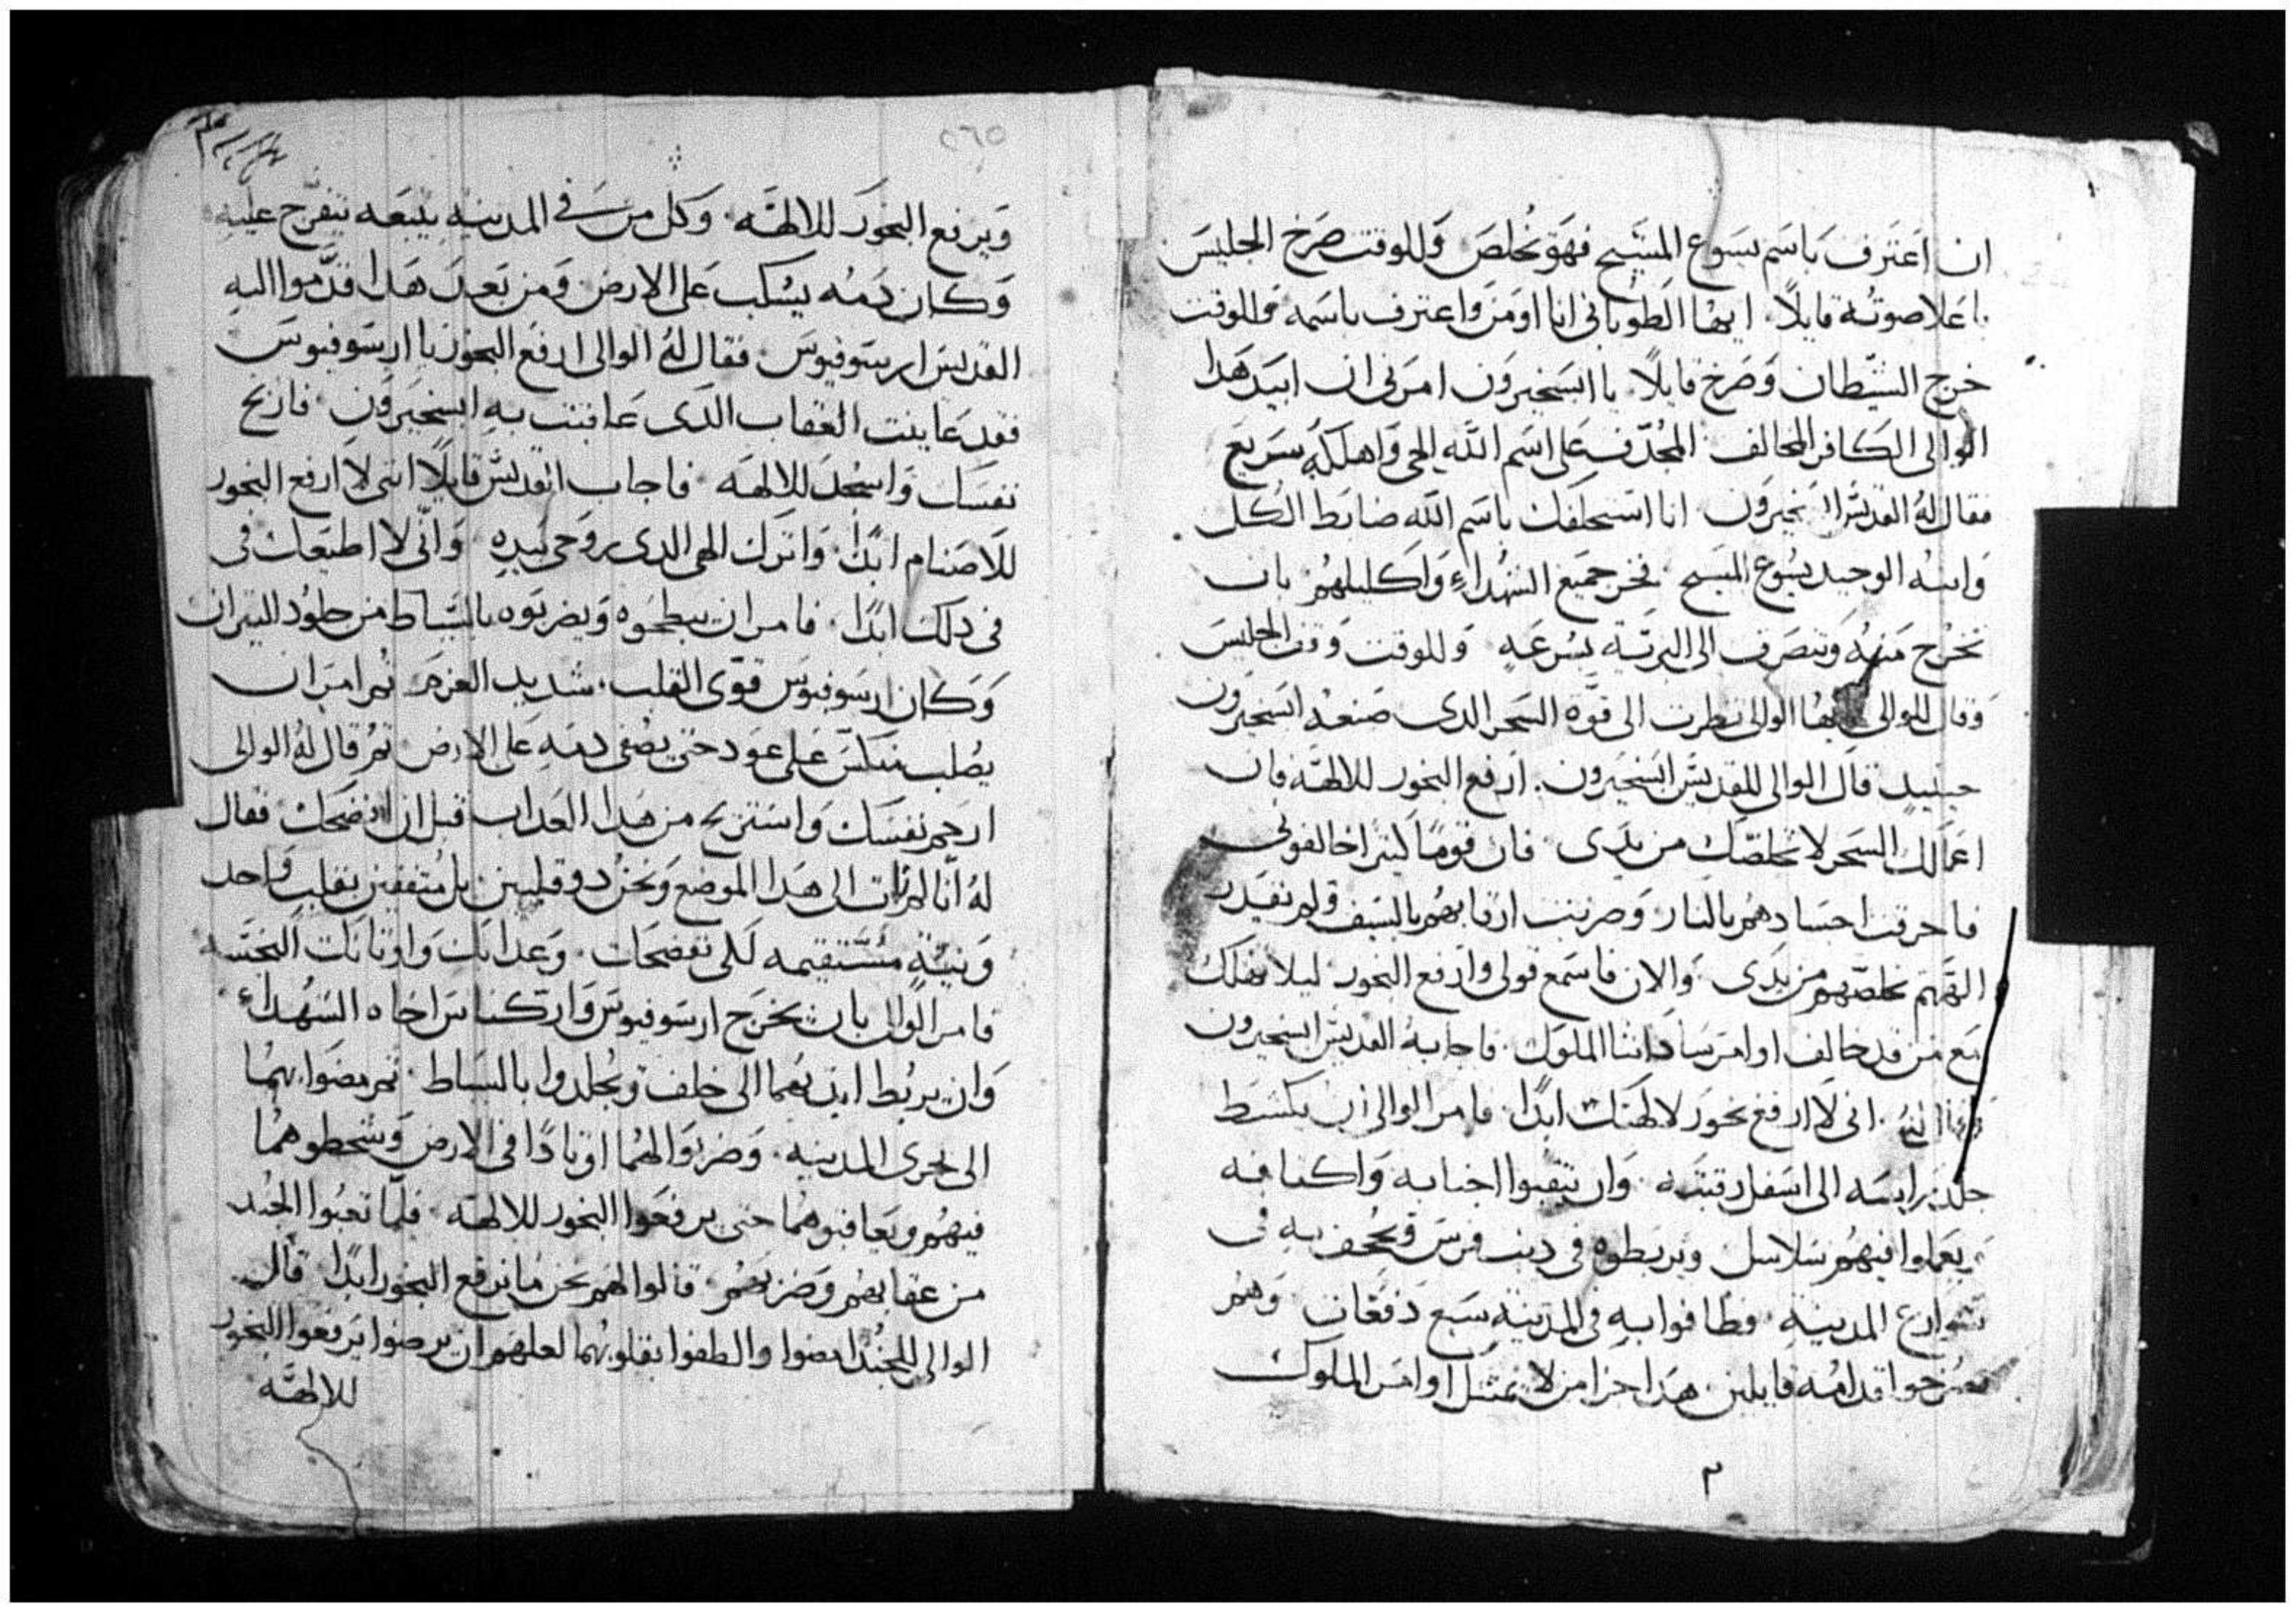 ان اعترف باسم يسوع المسيح فهو يخلص وللوقت صرخ الجليس
باعلا صوته قايلًا. ايها الطوباني انا اومن واعترف باسمه وللوقت
خرج الشيطان وصرخ قايلًا يا ابسخيرون امرني ان ابيد هدا
الوالى الكافر المخالف المجدف على اسم الله الحي واهلكه سريع
فقال له القديس ابسخيرون انا استحلفك باسم الله ضابط الكل
وابنه الوحيد يسوع المسيح فخر جميع الشهداء واكليلهم بان
تخرج منه وتنصرف الى البرية بسرعه وللوقت وقف الجليس
وقال للوالى ايها الوالى نظرت الى قوة السحر الدى صنعه ابسخيرون
حينيد قال الوالى للقديس ابسخيرون. ارفع البخور للالهه فان
اعمالك السحر لا تخلصك من يدى فان قومًا كثيرا خالفونى
فاحرقت اجسادهم بالنار وضربت ارقابهم بالسيف ولم تقدر
الهتهم تخلصهم من يدى والان فاسمع قولى وارفع البخور ليلا نهلك
مع من قد خالف اوامر ساداتنا الملوك. فاجابه القديس ابسخيرون
انى لا ارفع بخور لالهتك ابدًا. فامر الوالى ان يكشط
جلد راسه الى اسفل رقبته وان يثقبوا اجنابه واكتافه
يعملوا فيهم سلاسل ويربطوه في دنب فرس ويجحف به في
شوارع المدينه. فطافوا به في المدينة سبع دفعات وهم
يصرخوا قدامه قايلين. هدا جزا من لا يمتثل اوامر الملوك
٢
٢٦٥
ويرفع البخور للالهه. وكل من في المدينه يتبعه يتفرج عليه
وكان دمه يسكب على الارض ومن بعد هدا قدموا اليه
القديس ارسوفيوس فقال له الوالى ارفع البخور يا ارسوفيوس
فقد عاينت العقاب الدى عاقبت به ابسخيرون. فاربح
نفسك واسجد للالهه فاجاب القديس قايلًا اننى لا ارفع البخور
للاصنام ابدًا واترك الهى الدى روحى بيده وانى لا اطيعك فى
فى دلك ابدًا. فامر ان يبطحوه ويضربوه بالسياط من جلود التيران
وكان ارسوفيوس قوى القلب. شديد العزم تم امر ان
يصلب منكس على عود حتى يصفى دمه على الارض تم قال له الوالى
ارحم نفسك واستريح من هدا العداب قبل ان افضحك فقال
له انا لم ات الى هدا الموضع ونحن دو قلبين بل متفقين بقلب واحد
ونية مستقيمه لكى نفضحك. وعدابك واوتانك النجسه
فامر الوالى بان يخرج ارسوفيوس وارتكناس اخاه الشهداء
وان يربط ايديهما الى خلف ويجلدوا بالسياط. تم مضوا بهما
الى بحرى المدينه. وضربوا لهما اوتادًا في الارض وشحطوهما
فيهم ويعاقبوهما حتى يرفعوا البخور للالهه. فلما تعبوا الجند
من عقابهم وضربهم. قالوا لهم نحن ما نرفع البخور ابدًا قال
الوالى للجند امضوا والطفوا بقلوبهما لعلهم ان يرضوا يرفعوا البخور
للالهه